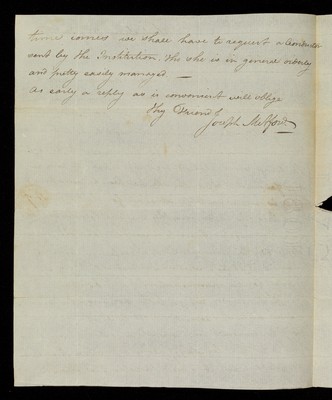 time comes we shall have to request a
sent by the Institution, tho' she is in general orderly
and pretty easily managed —
As early a reply as is convenient will oblige
Thy Friend
Joseph Mitford